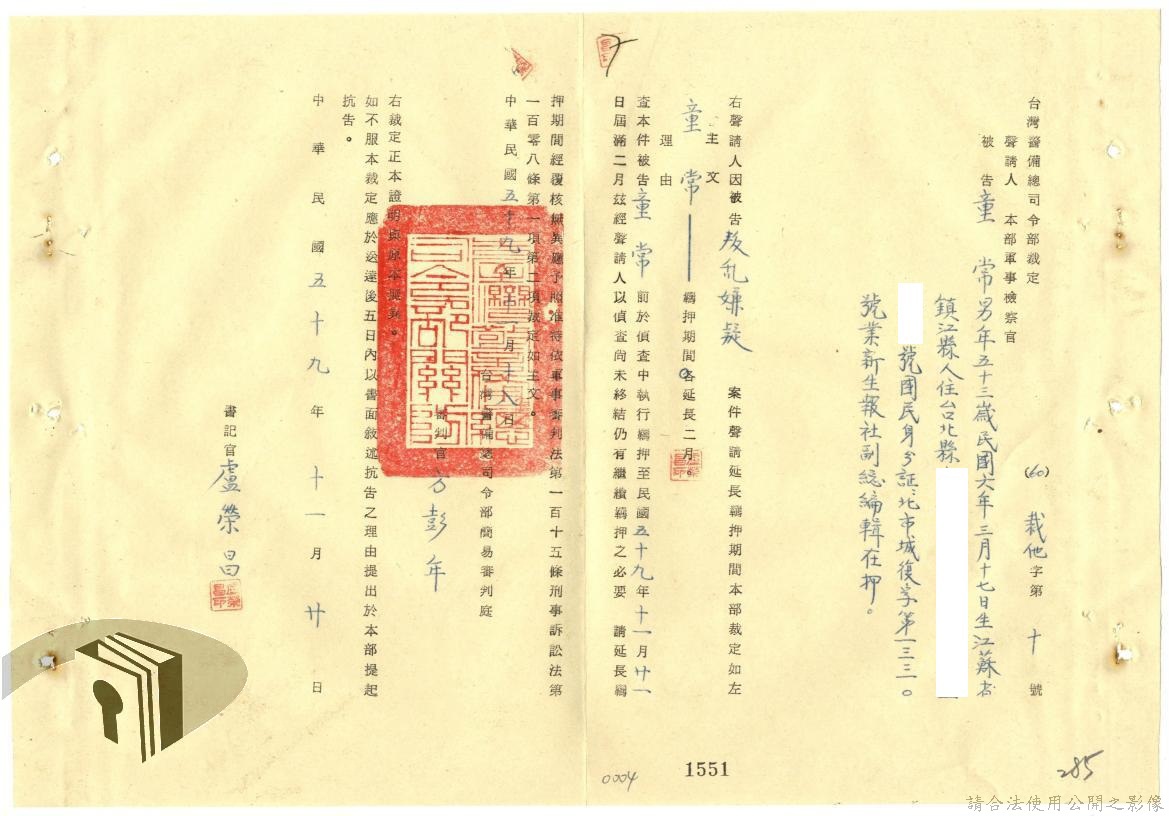 台灣警備總司令部裁定
(60) 裁他字第十號
聲請人 本部軍事檢察官
被告童常男年五十三歲民國六年三月十七日生江蘇省
鎮江縣人住台北縣
號國民身分証北市城復字第一三三〇
號業新生報社副總編輯在押。
右聲請人因被告叛乱嫌疑 案件聲請延長羈押期間本部裁定如左
主文
童常——羈押期間各延長二月。
理由
查本件被告童常前於偵查中執行羈押至民國五十九年十一月廿一
日屆滿二月茲經聲請人以偵查尚未終結仍有繼續羈押之必要 請延長羈
押期間經覆核無異應予照准特依軍事審判法第一百十五條刑事訴訟法第
一百零八條第一項第二項裁定如主文。
中華民國五十九年十一月十八日
台灣警備總司令部簡易審判庭
審判官方彭年
右裁定正本證明與原本無異。
如不服本裁定應於送達後五日內以書面敘述抗告之理由提出於本部提起
抗告。
中華民國五十九年十一月廿日
書記官盧榮昌
1551
0004
285
請合法使用公開之影像